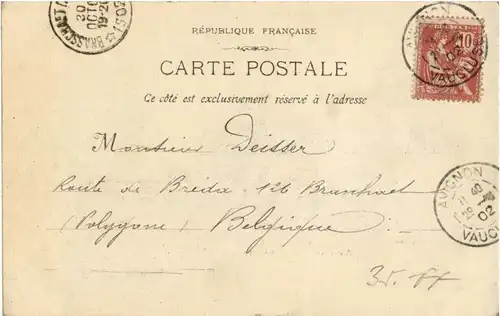 BRASSCHAET
20
OCTO
19-20
1902
RÉPUBLIQUE FRANÇAISE
CARTE POSTALE
Ce côté est exclusivement réservé à l'adresse
AVIGNON
VAUCLUSE
10
Monsieur Deisser
Route de Bréda 126 Braschaet
(Polygone) Belgique
AVIGNON
11 40
02
VAUCL
35.